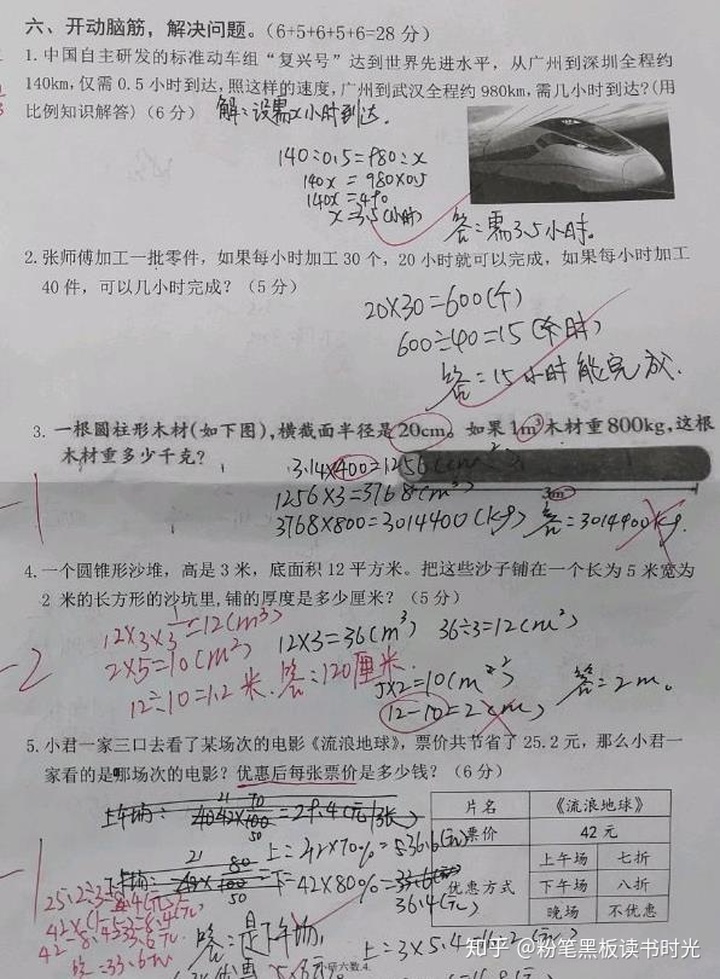 六、开动脑筋，解决问题。(6+5+6+5+6=28 分)
1. 中国自主研发的标准动车组“复兴号”达到世界先进水平，从广州到深圳全程约
140km，仅需 0.5 小时到达，照这样的速度，广州到武汉全程约 980km，需几小时到达?(用
比例知识解答)(6 分) 解:设需x小时到达.
140÷0.5=980÷x
140x = 980×0.5
140x =490
x=3.5(小时)
答:需3.5小时。
2. 张师傅加工一批零件，如果每小时加工 30 个，20 小时就可以完成，如果每小时加工
40 件，可以几小时完成？(5 分)
20×30=600(个)
600÷40=15(小时)
答:15小时能完成.
3. 一根圆柱形木材(如下图)，横截面半径是20cm。如果1m³木材重800kg，这根
木材重多少千克?
3.14×400=1256(cm²)
3m
-1
1256×3=3768(m³)
3768×800=3014400(kg) 答:3014400kg.
4. 一个圆锥形沙堆，高是 3 米，底面积 12 平方米。把这些沙子铺在一个长为 5 米宽为
2 米的长方形的沙坑里,铺的厚度是多少厘米？(5 分)
12×3=36(m³) 36÷3=12(m²)
-2
2×5=10(m²)
12÷10=1.2米. 答:120厘米.
5×2=10(m²) 答:2m。
12-10=2(m)
5. 小君一家三口去看了某场次的电影《流浪地球》，票价共节省了 25.2 元，那么小君一
家看的是哪场次的电影？优惠后每张票价是多少钱？(6 分)
片名 《流浪地球》
票价 42 元
优惠方式 上午场 七折
下午场 八折
晚场 不优惠
-1
上午场: =29.4(元/张)
下午场:
42×80%=
答:是下午场,
知乎 @粉笔黑板读书时光